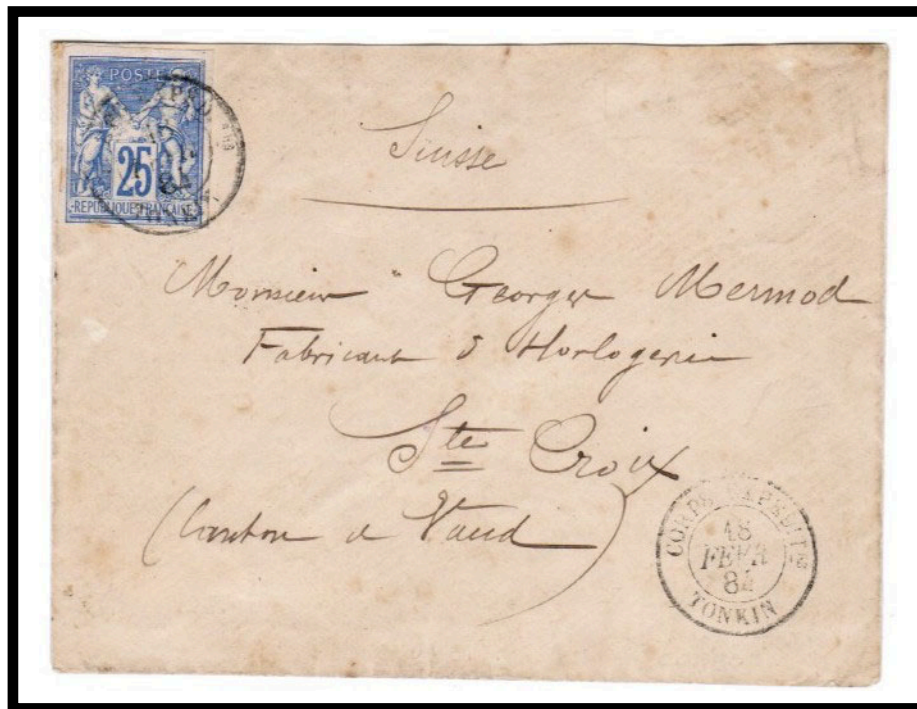 POSTE
25
REPUBLIQUE FRANÇAISE
Suisse
Monsieur Georges Mermod
Fabricant d'Horlogerie
Ste Croix
(Canton de Vaud)
CORPS EXPEDIT.RE
18
FEVR
84
TONKIN